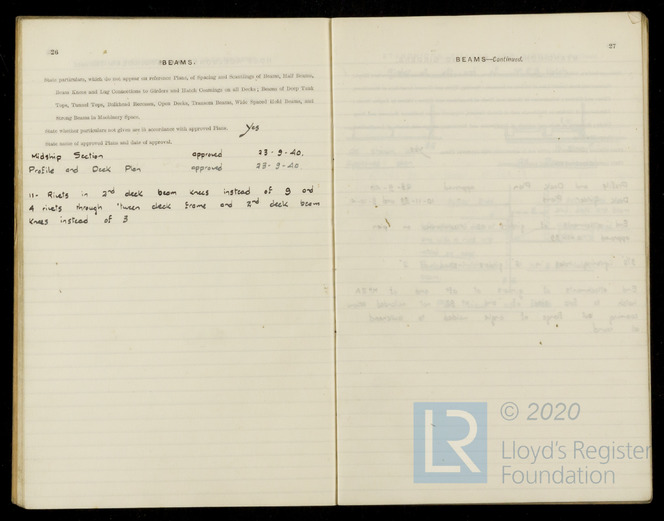 26
BEAMS.
State particulars, which do not appear on reference Plans, of Spacing and Scantlings of Beams, Half Beams,
Beam Knees and Lug Connections to Girders and Hatch Coamings on all Decks; Beams of Deep Tank
Tops, Tunnel Tops, Bulkhead Recesses, Open Decks, Transom Beams, Wide Spaced Hold Beams, and
Strong Beams in Machinery Space.
State whether particulars not given are in accordance with approved Plans. Yes
State name of approved Plans and date of approval.
Midship Section approved 23-9-40.
Profile and Deck Plan approved 23-9-40.
11- Rivets in 2nd deck beam knees instead of 9 and
4 rivets through 'tween deck frame and 2nd deck beam
knees instead of 3
27
BEAMS—Continued.
LR
© 2020
Lloyd's Register
Foundation